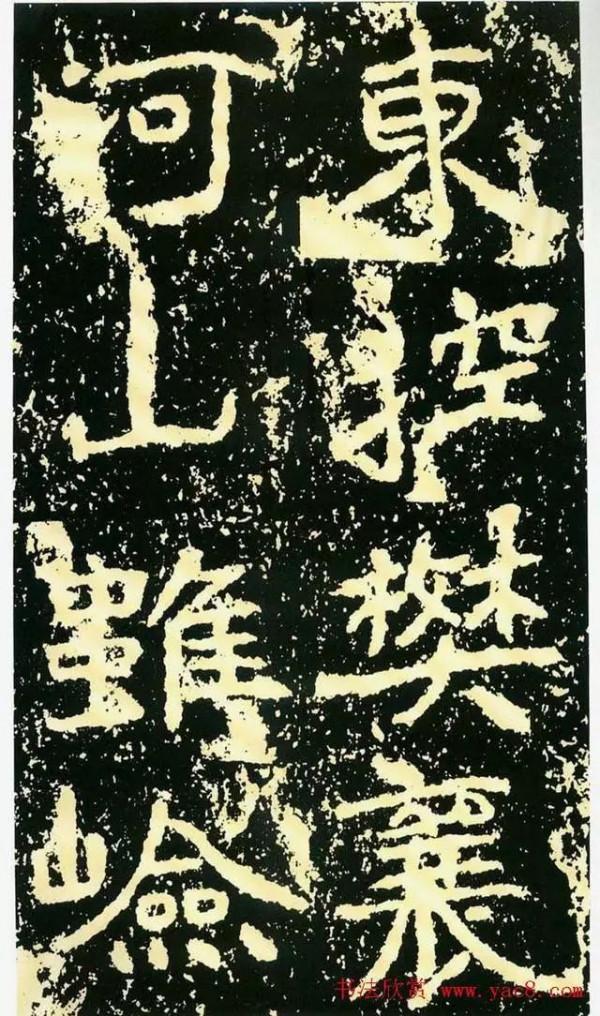 東控樊襄
河山雖嶮
书法欣赏 www.yac8.com